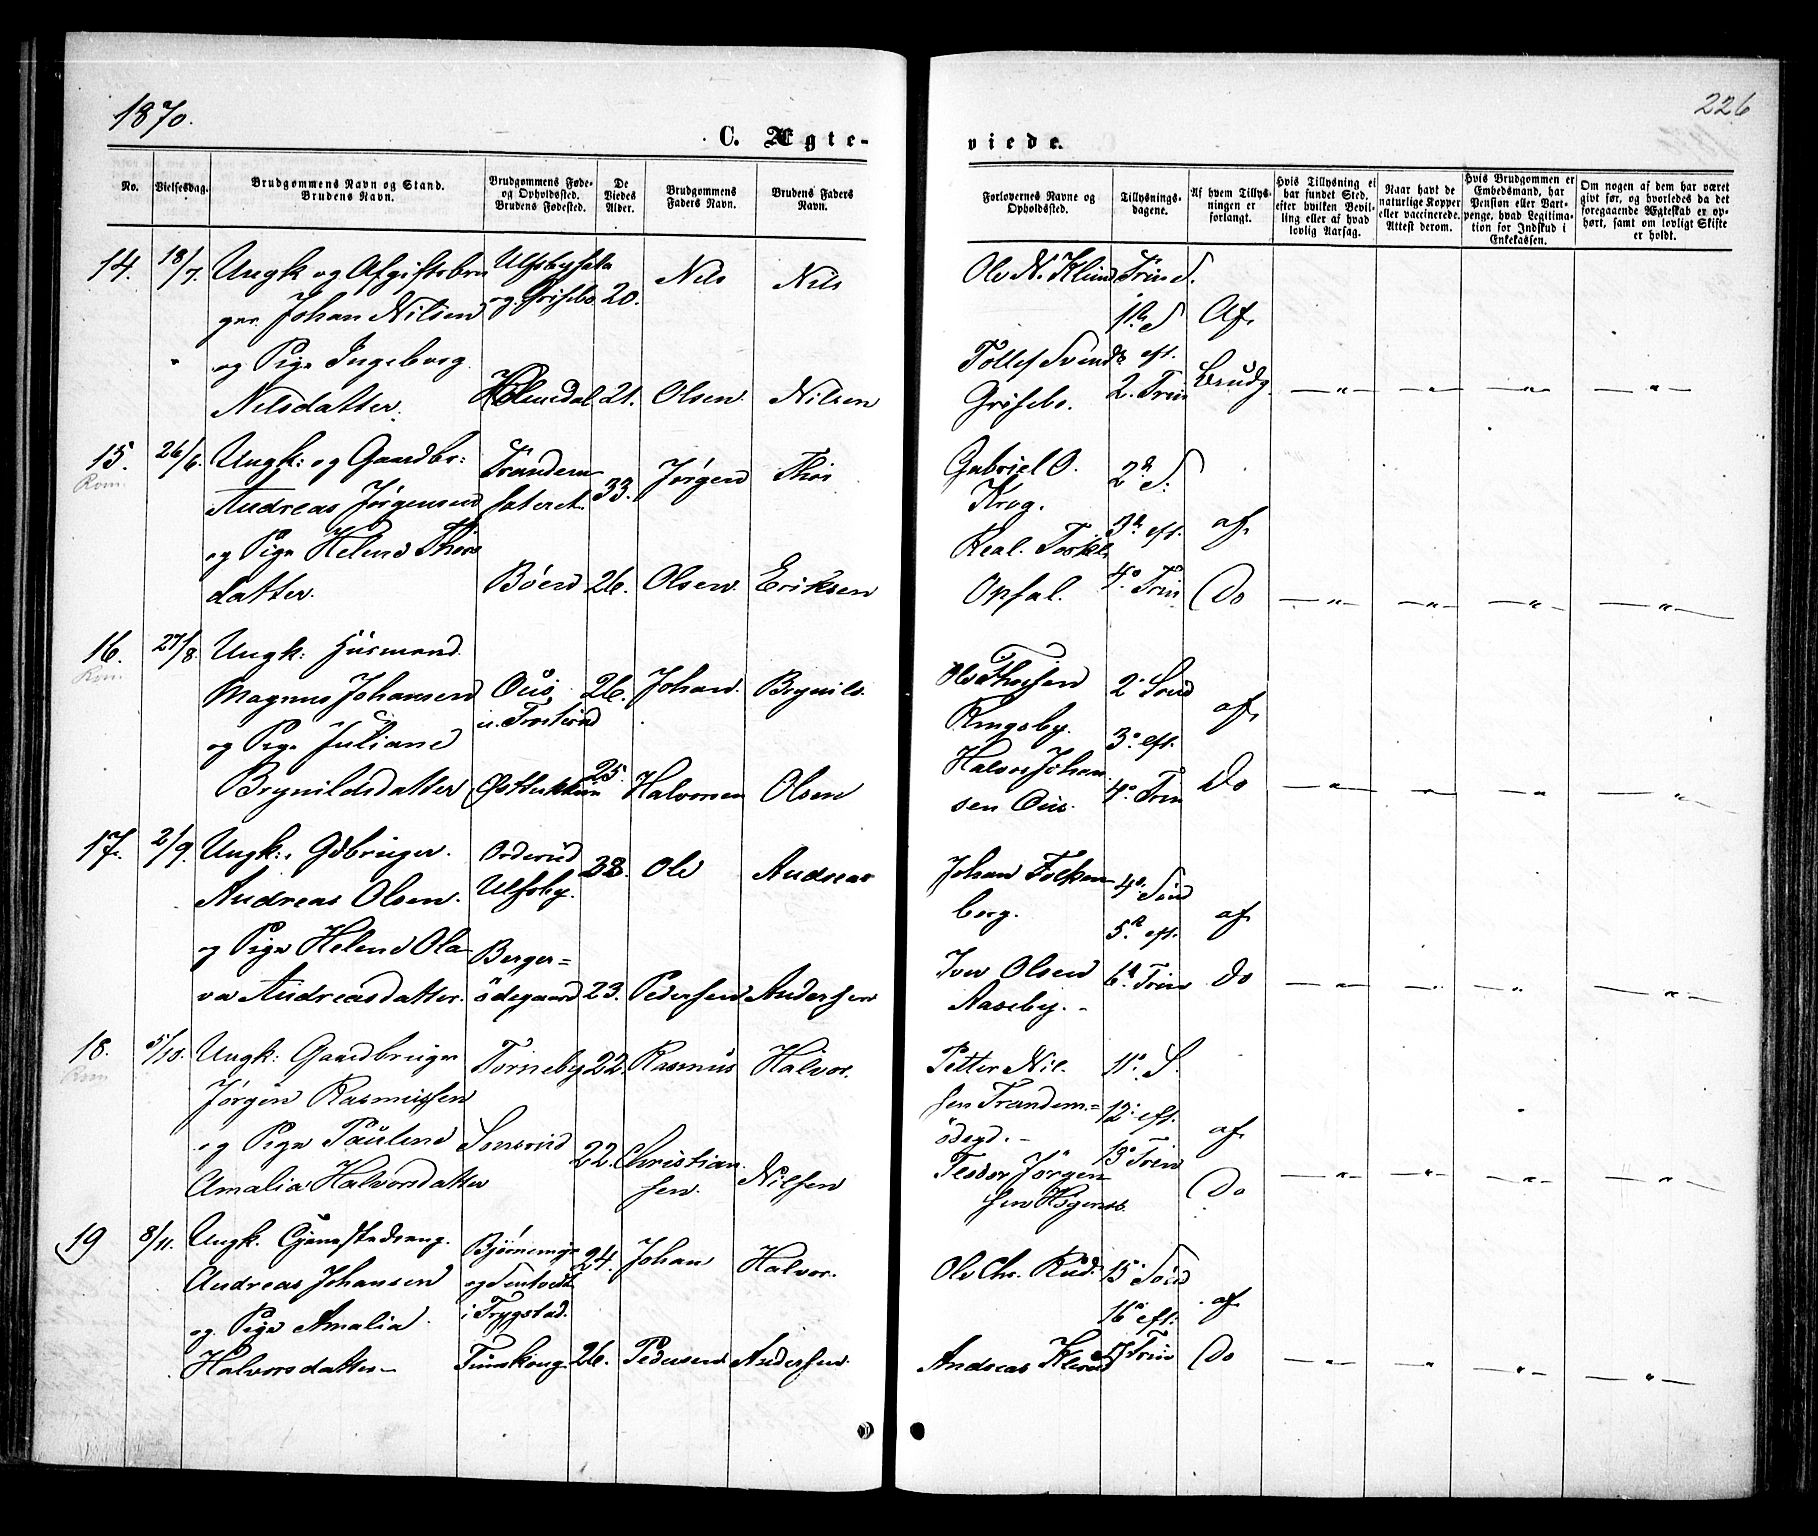 1870.
226
C. Ægte-
viede.
No.
Vielsesdag.
Brudgommens Navn og Stand.
Brudens Navn.
Brudgommens Føde-
og Opholdssted.
Brudens Fødested.
De
Viedes
Alder.
Brudgommens
Faders Navn.
Brudens Faders
Navn.
Forlovernes Navne og
Opholdssted.
Tillysnings-
dagene.
Af hvem Tillys-
ningen er
forlangt.
Hvis Tillysning ei
har fundet Sted,
efter hvilken Bevil-
ling eller af hvad
lovlig Aarsag.
Naar havt de
naturlige Kopper
eller vaccinerede.
Attest derom.
Hvis Brudgommen er
Embedsmand, har
Pension eller Vart-
penge, hvad Legitima-
tion for Indskud i
Enkekassen.
Om nogen af dem har været
givt før, og hvorledes da det
foregaaende Ægteskab er op-
hørt, samt om lovligt Skifte
er holdt.
14. 18/7. Ungk og Afgiftsbru
ger Johan Nilsen
og Pige Ingeborg
Nilsdatter.
Ulfsbysata
og Grisebo
20.
Nils
Nils
Holmedal 21. Olsen. Nilsen
Ole N. Klund
Tollef Svends
Grisebo.
Trin S.
1ste S
eft.
2. Trin
Af
Brudg.
15. 26/6. Ungk: og Gaardbr:
Rom.
Andreas Jørgensen
og Pige Helene Thors
datter.
Trandem
sateret.
33. Jørgen Thor
Böen 26. Olsen. Eriksen
Gabriel O.
Krog.
Real. Torkl.
Opsal.
2d S.
3d eft.
4o Trin
af
Do
16. 27/8. Ungk: Husmand
Rom.
Magnus Johansen
og Pige Juliane
Brynildsdatter
Ous
u. Trosterud
26. Johan. Brynild.
25. Halvorsen Olsen
Ole Thorsen
Ringsby.
Halvor Johan
sen Ous.
2. Sønd
3. eft.
4. Trin
af
Do
17. 2/9. Ungk: Gdbruger.
Andreas Olsen.
og Pige Helene Ola
va Andreasdatter.
Orderud
Ulfsby.
Berger=
ödegaard
Ole Andreas
23. Pedersen Andersen
Johan Falken
berg.
Iver Olsen
Aaseby. -
4. Sønd
5. eft.
6. Trin
af
Do
18. 5/10. Ungk: Gaardbruger
Rom
Jörgen Rasmussen
og Pige Pauline
Amalia Halvorsdatter
Torneby 22. Rasmus Halvor.
22. Christian
sen. Nilsen
Petter Nil.
sen Trandem.=
ödegd. -
Teodor Jörgen
sen
11o S.
12. eft.
13. Trin
af
Do
19 8/11. Ungk.
Andreas Johansen
og Pige Amalia
Halvorsdatter
i Trygstad.
24. Johan Halvor.
26. Pedersen Andersen
Ole Chr. Rud.
Andreas Klerud
15. Sønd
16. eft.
17. Trin
af
Do